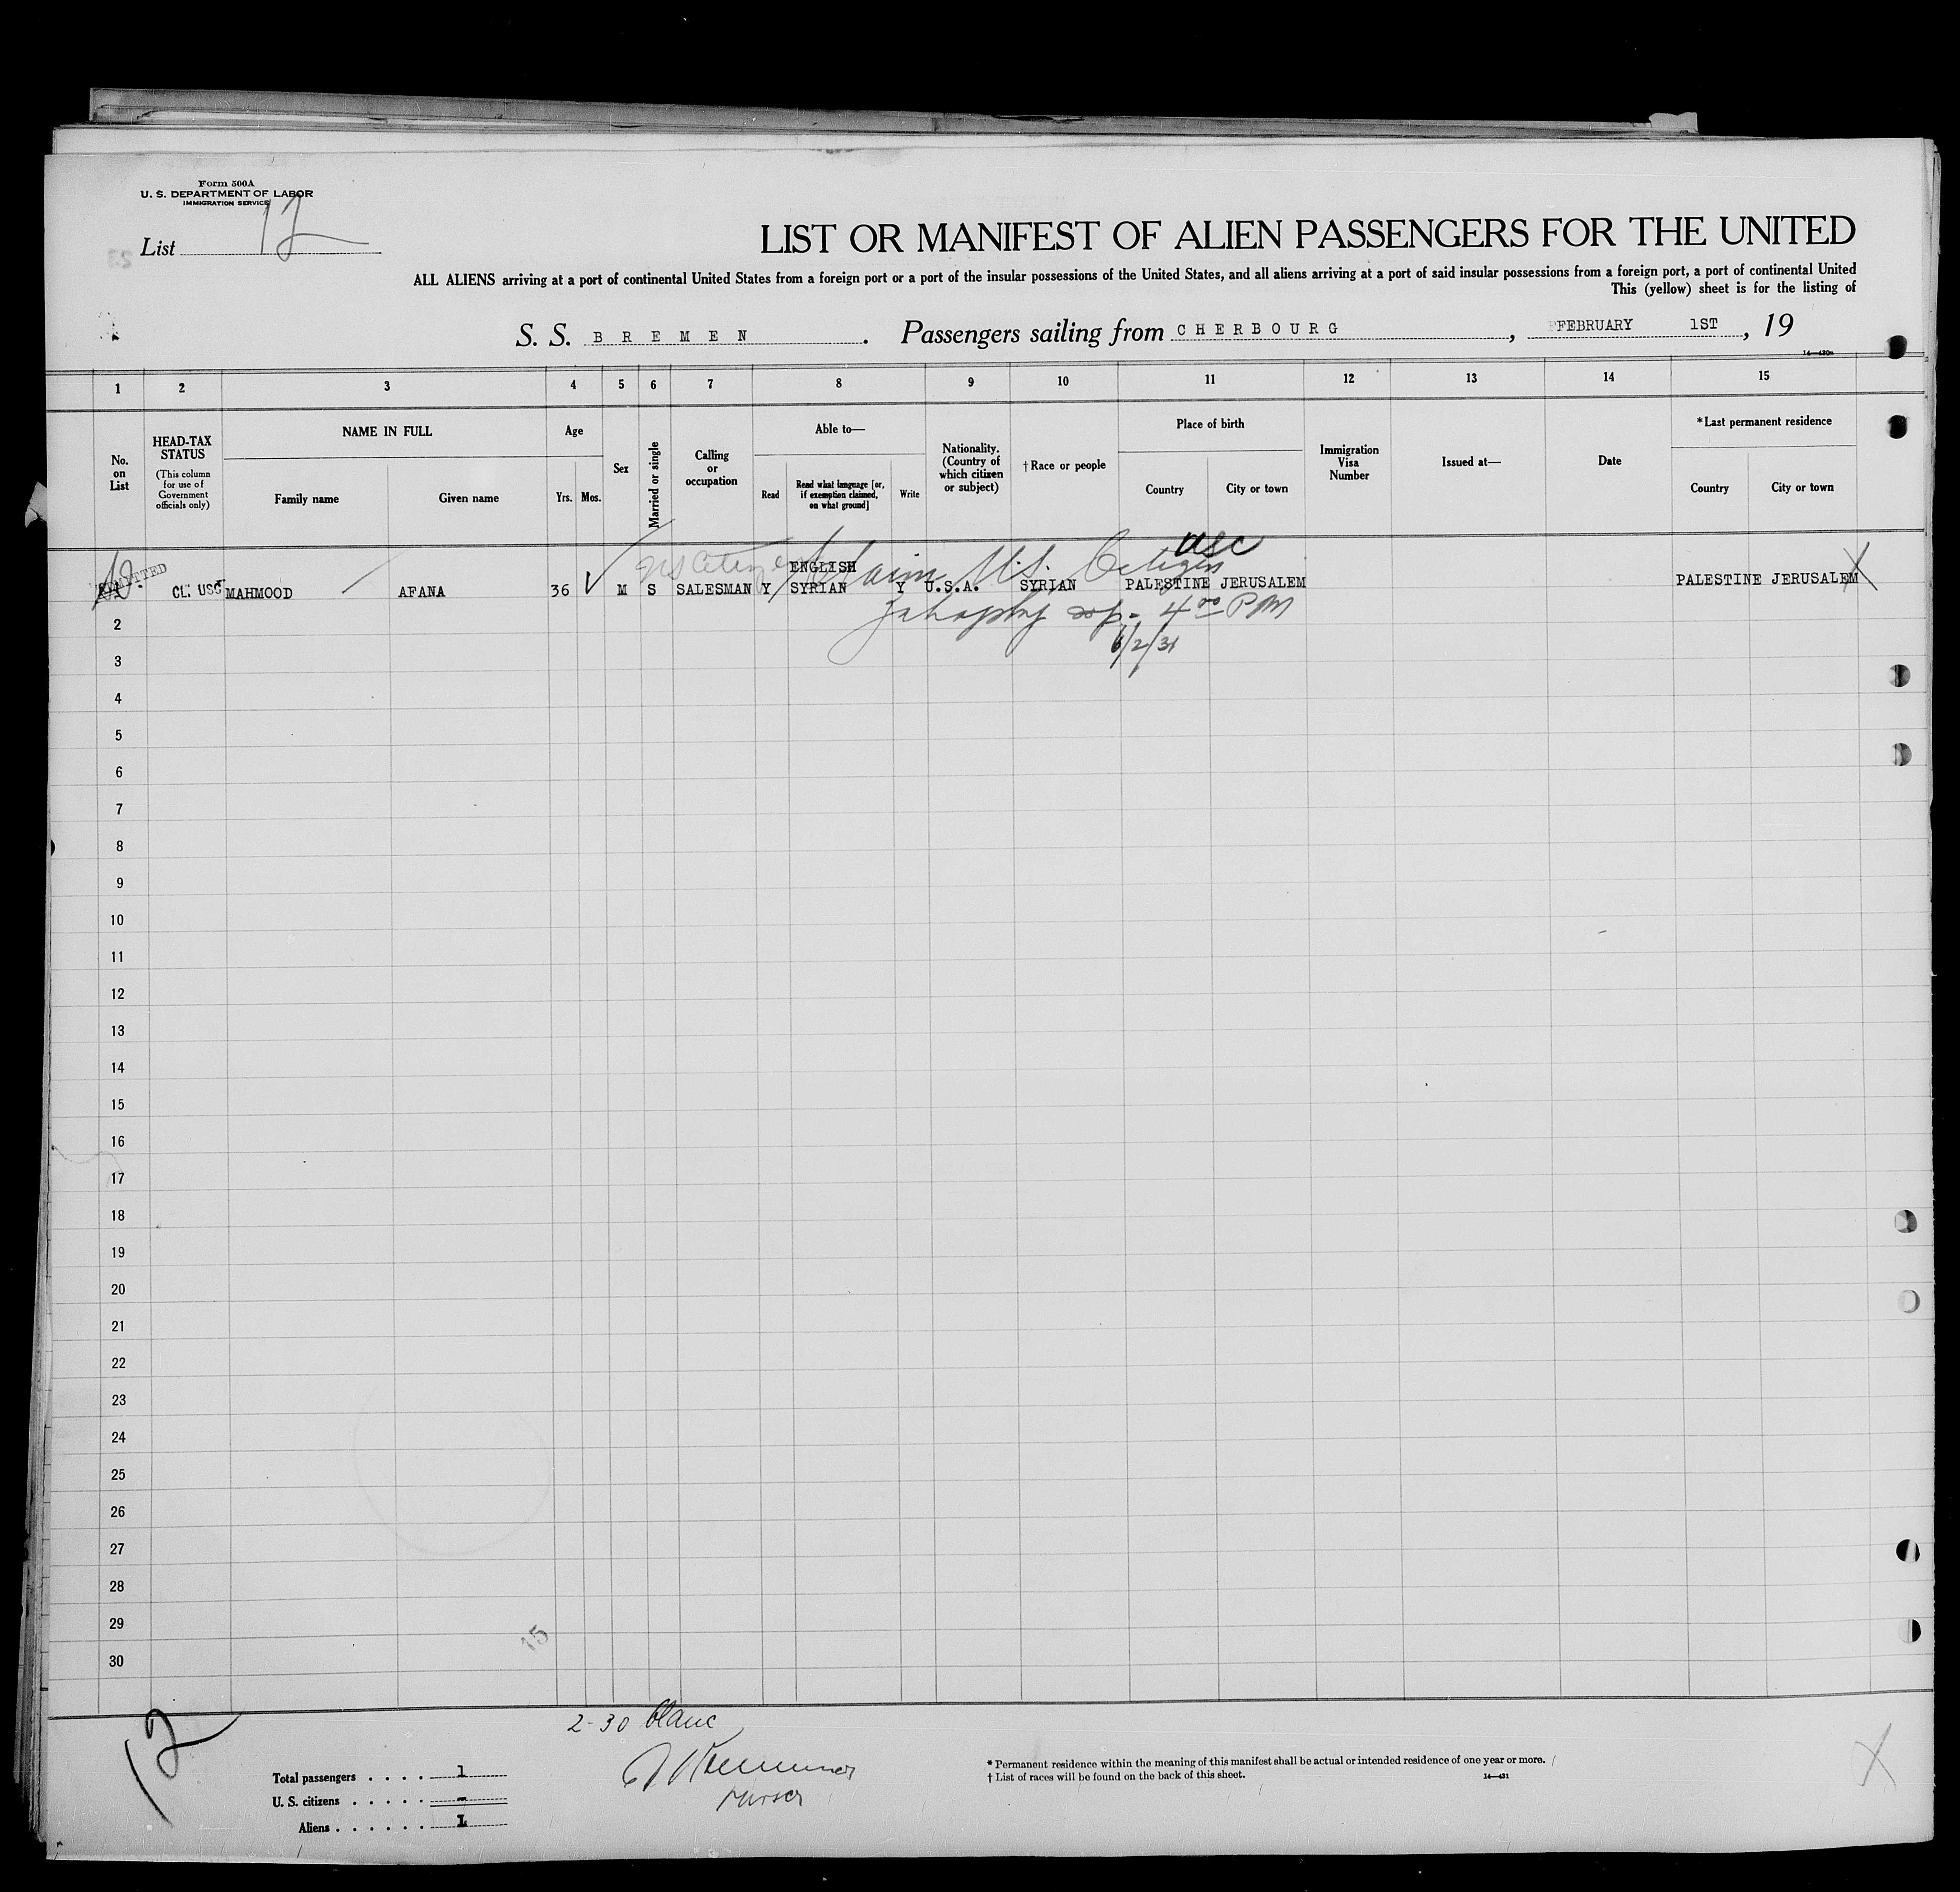 Form 500A
U. S. DEPARTMENT OF LABOR
IMMIGRATION SERVICE
List 12
LIST OR MANIFEST OF ALIEN PASSENGERS FOR THE UNITED
ALL ALIENS arriving at a port of continental United States from a foreign port or a port of the insular possessions of the United States, and all aliens arriving at a port of said insular possessions from a foreign port, a port of continental United
This (yellow) sheet is for the listing of
S. S. BREMEN . Passengers sailing from CHERBOURG , FEBRUARY 1ST , 19
1 2 3 4 5 6 7 8 9 10 11 12 13 14 15
No. on List
HEAD-TAX STATUS
(This column for use of Government officials only)
NAME IN FULL
Family name
Given name
Age
Yrs.
Mos.
Sex
Married or single
Calling or occupation
Able to—
Read
Read what language [or, if exemption claimed, on what ground]
Write
Nationality. (Country of which citizen or subject)
†Race or people
Place of birth
Country
City or town
Immigration Visa Number
Issued at—
Date
*Last permanent residence
Country
City or town
US Citizen
Claim U.S. Citizen
USC
ADMITTED
ENGLISH
CL: USC MAHMOOD AFANA 36 M S SALESMAN Y SYRIAN Y U.S.A. SYRIAN PALESTINE JERUSALEM PALESTINE JERUSALEM
4 00 PM
2
3
4
5
6
7
8
9
10
11
12
13
14
15
16
17
18
19
20
21
22
23
24
25
26
27
28
29
30
15
12
2-30 blanc
Purser
Total passengers . . . . 1
U. S. citizens . . . . . -
Aliens . . . . . . 1
* Permanent residence within the meaning of this manifest shall be actual or intended residence of one year or more.
† List of races will be found on the back of this sheet.
14—431